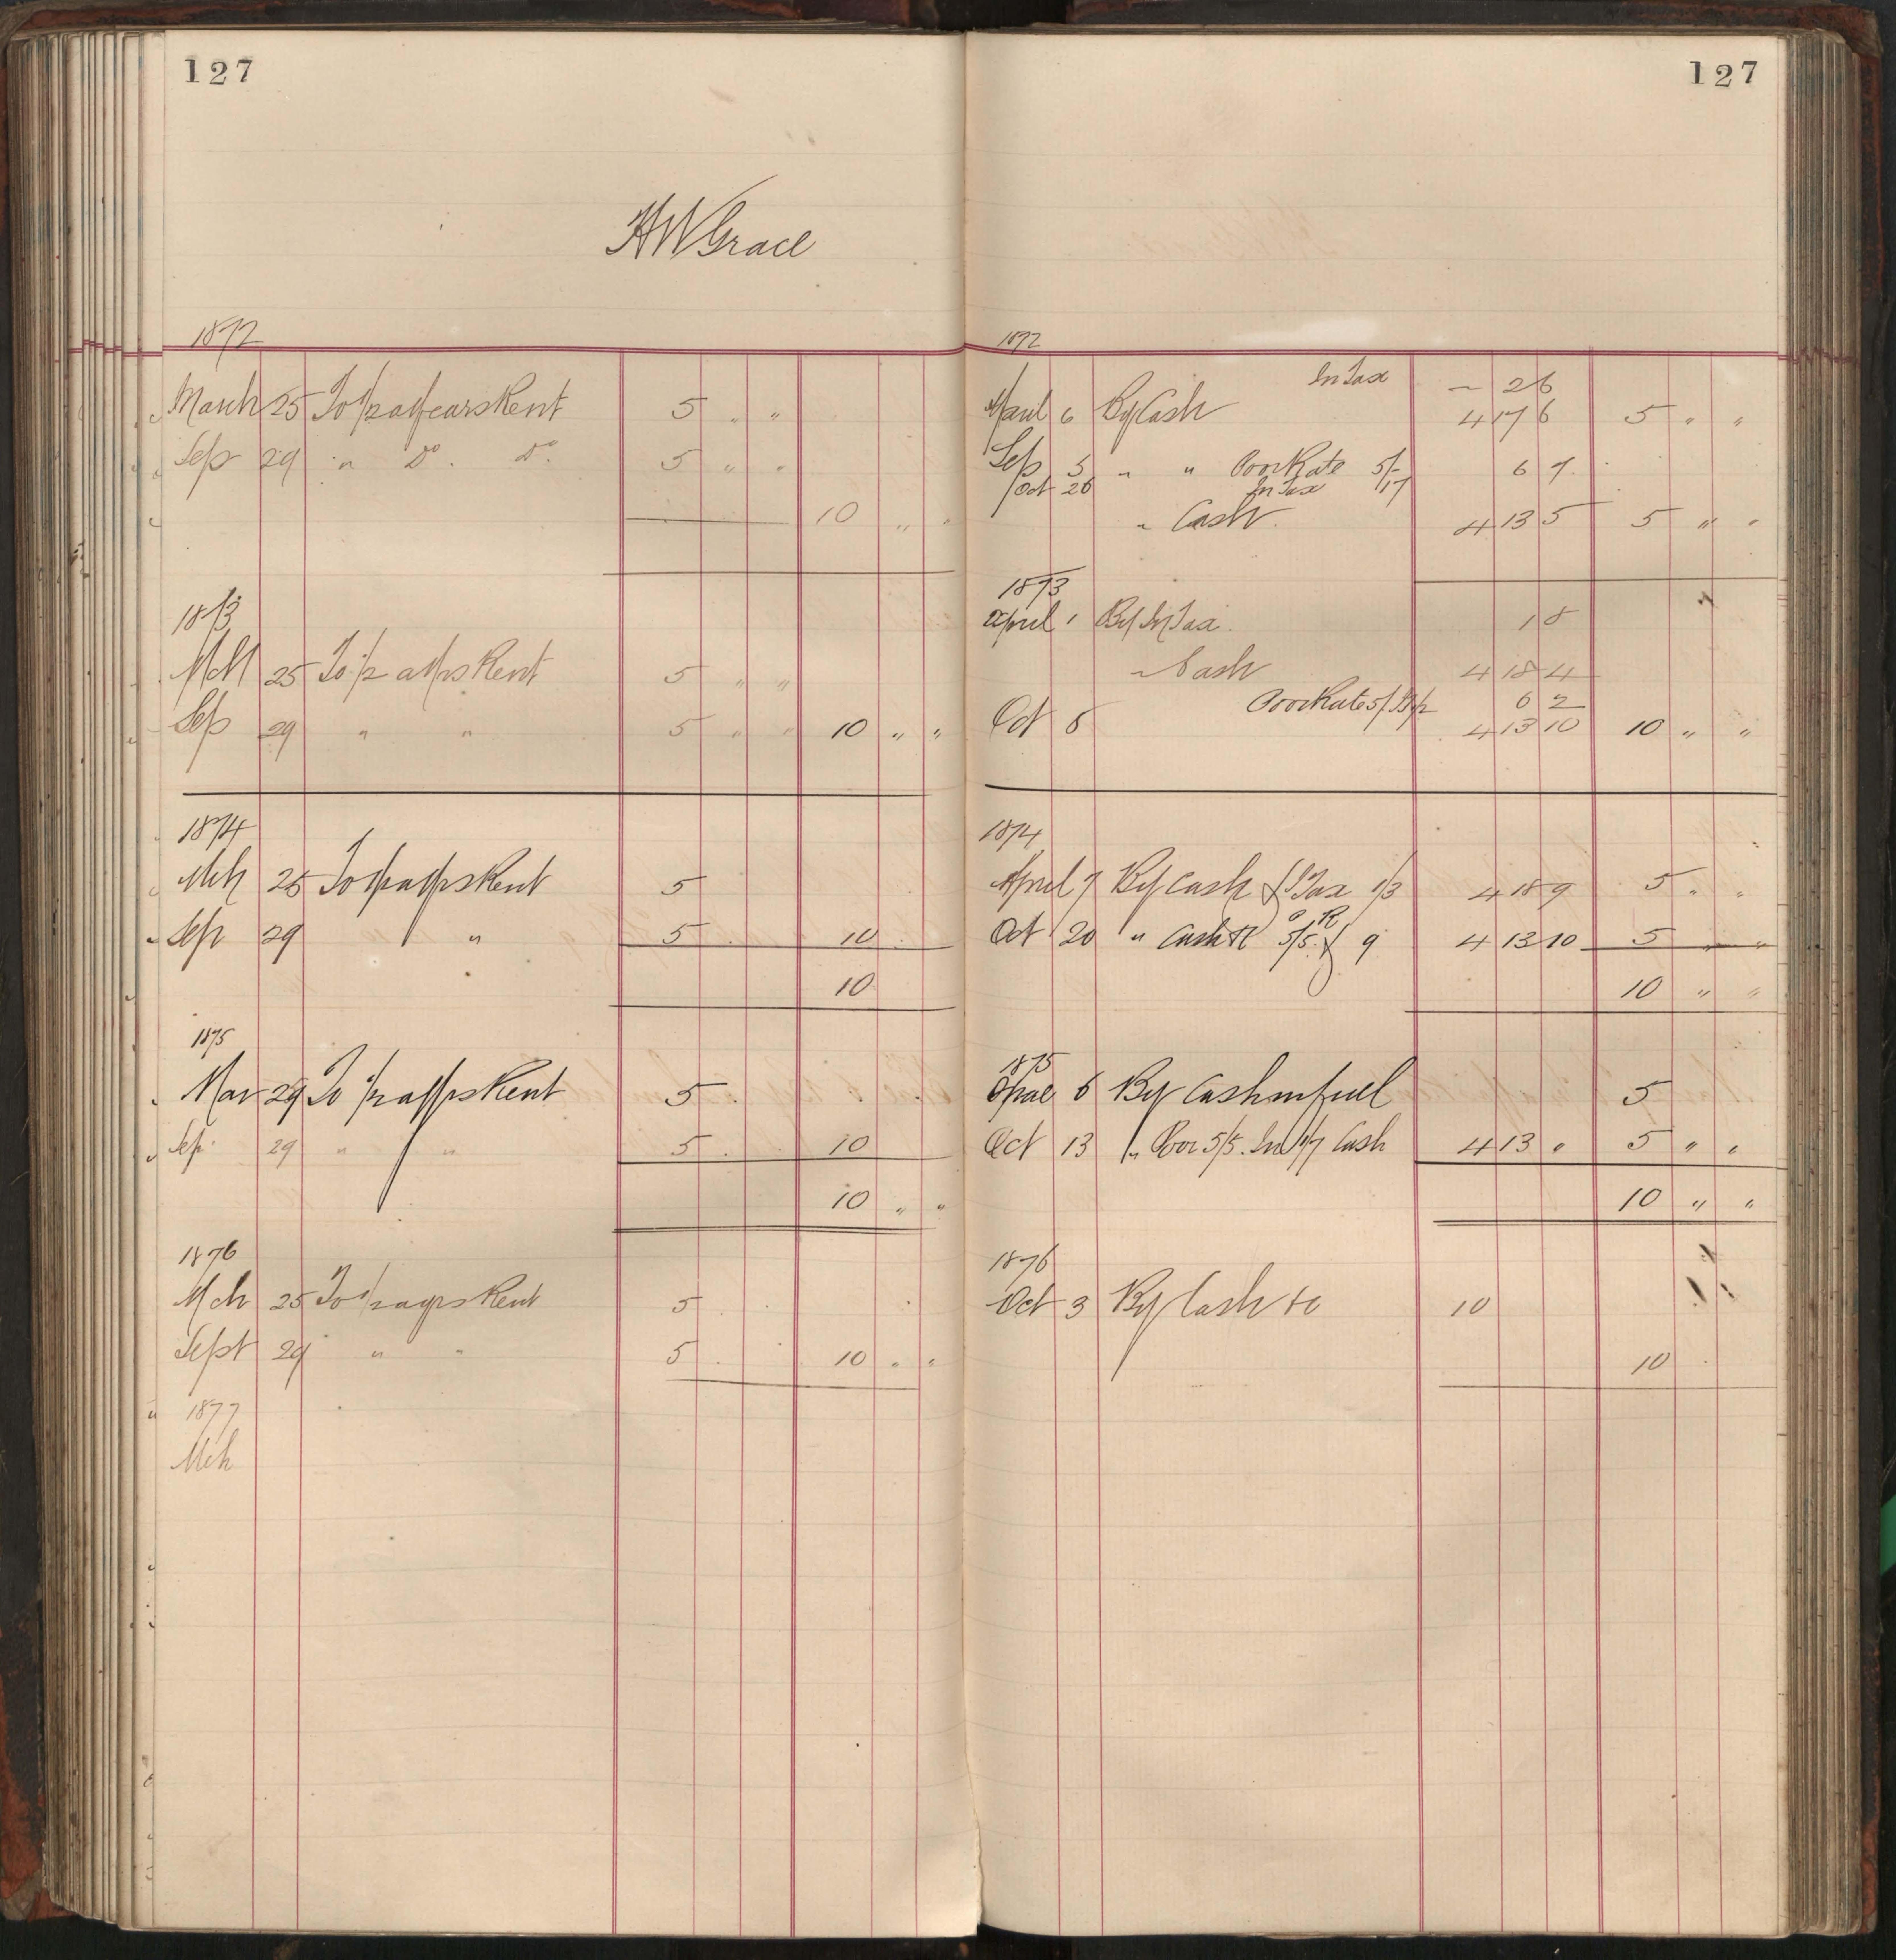 127
H W Grace
1872
March 25 To ½ a years Rent 5 " "
Sep 29 " Do. Do. 5 " "
10 " "
1873
Mch 25 To ½ a yrs Rent 5 " "
Sep 29 " " 5 " " 10 " "
1874
Mch 25 To ½ a yrs Rent 5
Sep 29 " 5 10
10
1875
Mar 29 To ½ a yrs Rent 5
Sep 29 " " 5 10
10 " "
1876
Mch 25 To ½ a yrs Rent 5
Sept 29 " " 5 10 " "
1877
Mch
127
1872
In Tax 2 6
April 6 By Cash 4 17 6 5 " "
Sep 5 " " Poor Rate 5/- 6 7
Oct 26 In Tax 1/7
" Cash 4 13 5 5 " "
1873
April 1 By In Tax. 1 8
" Cash 4 18 4
Poor Rate 5/ 6 2
Oct 8 4 13 10 10 " "
1874
April 7 By Cash & I Tax 1/3 4 18 9 5 " "
P R
Oct 20 " Cash & 5/5. & 9 4 13 10 5 " "
10 " "
1875
6 By Cash in full 5
Oct 13 " Poor 5/5. In 1/7 Cash 4 13 " 5 " "
10 " "
1876
Oct 3 By Cash &c 10
10